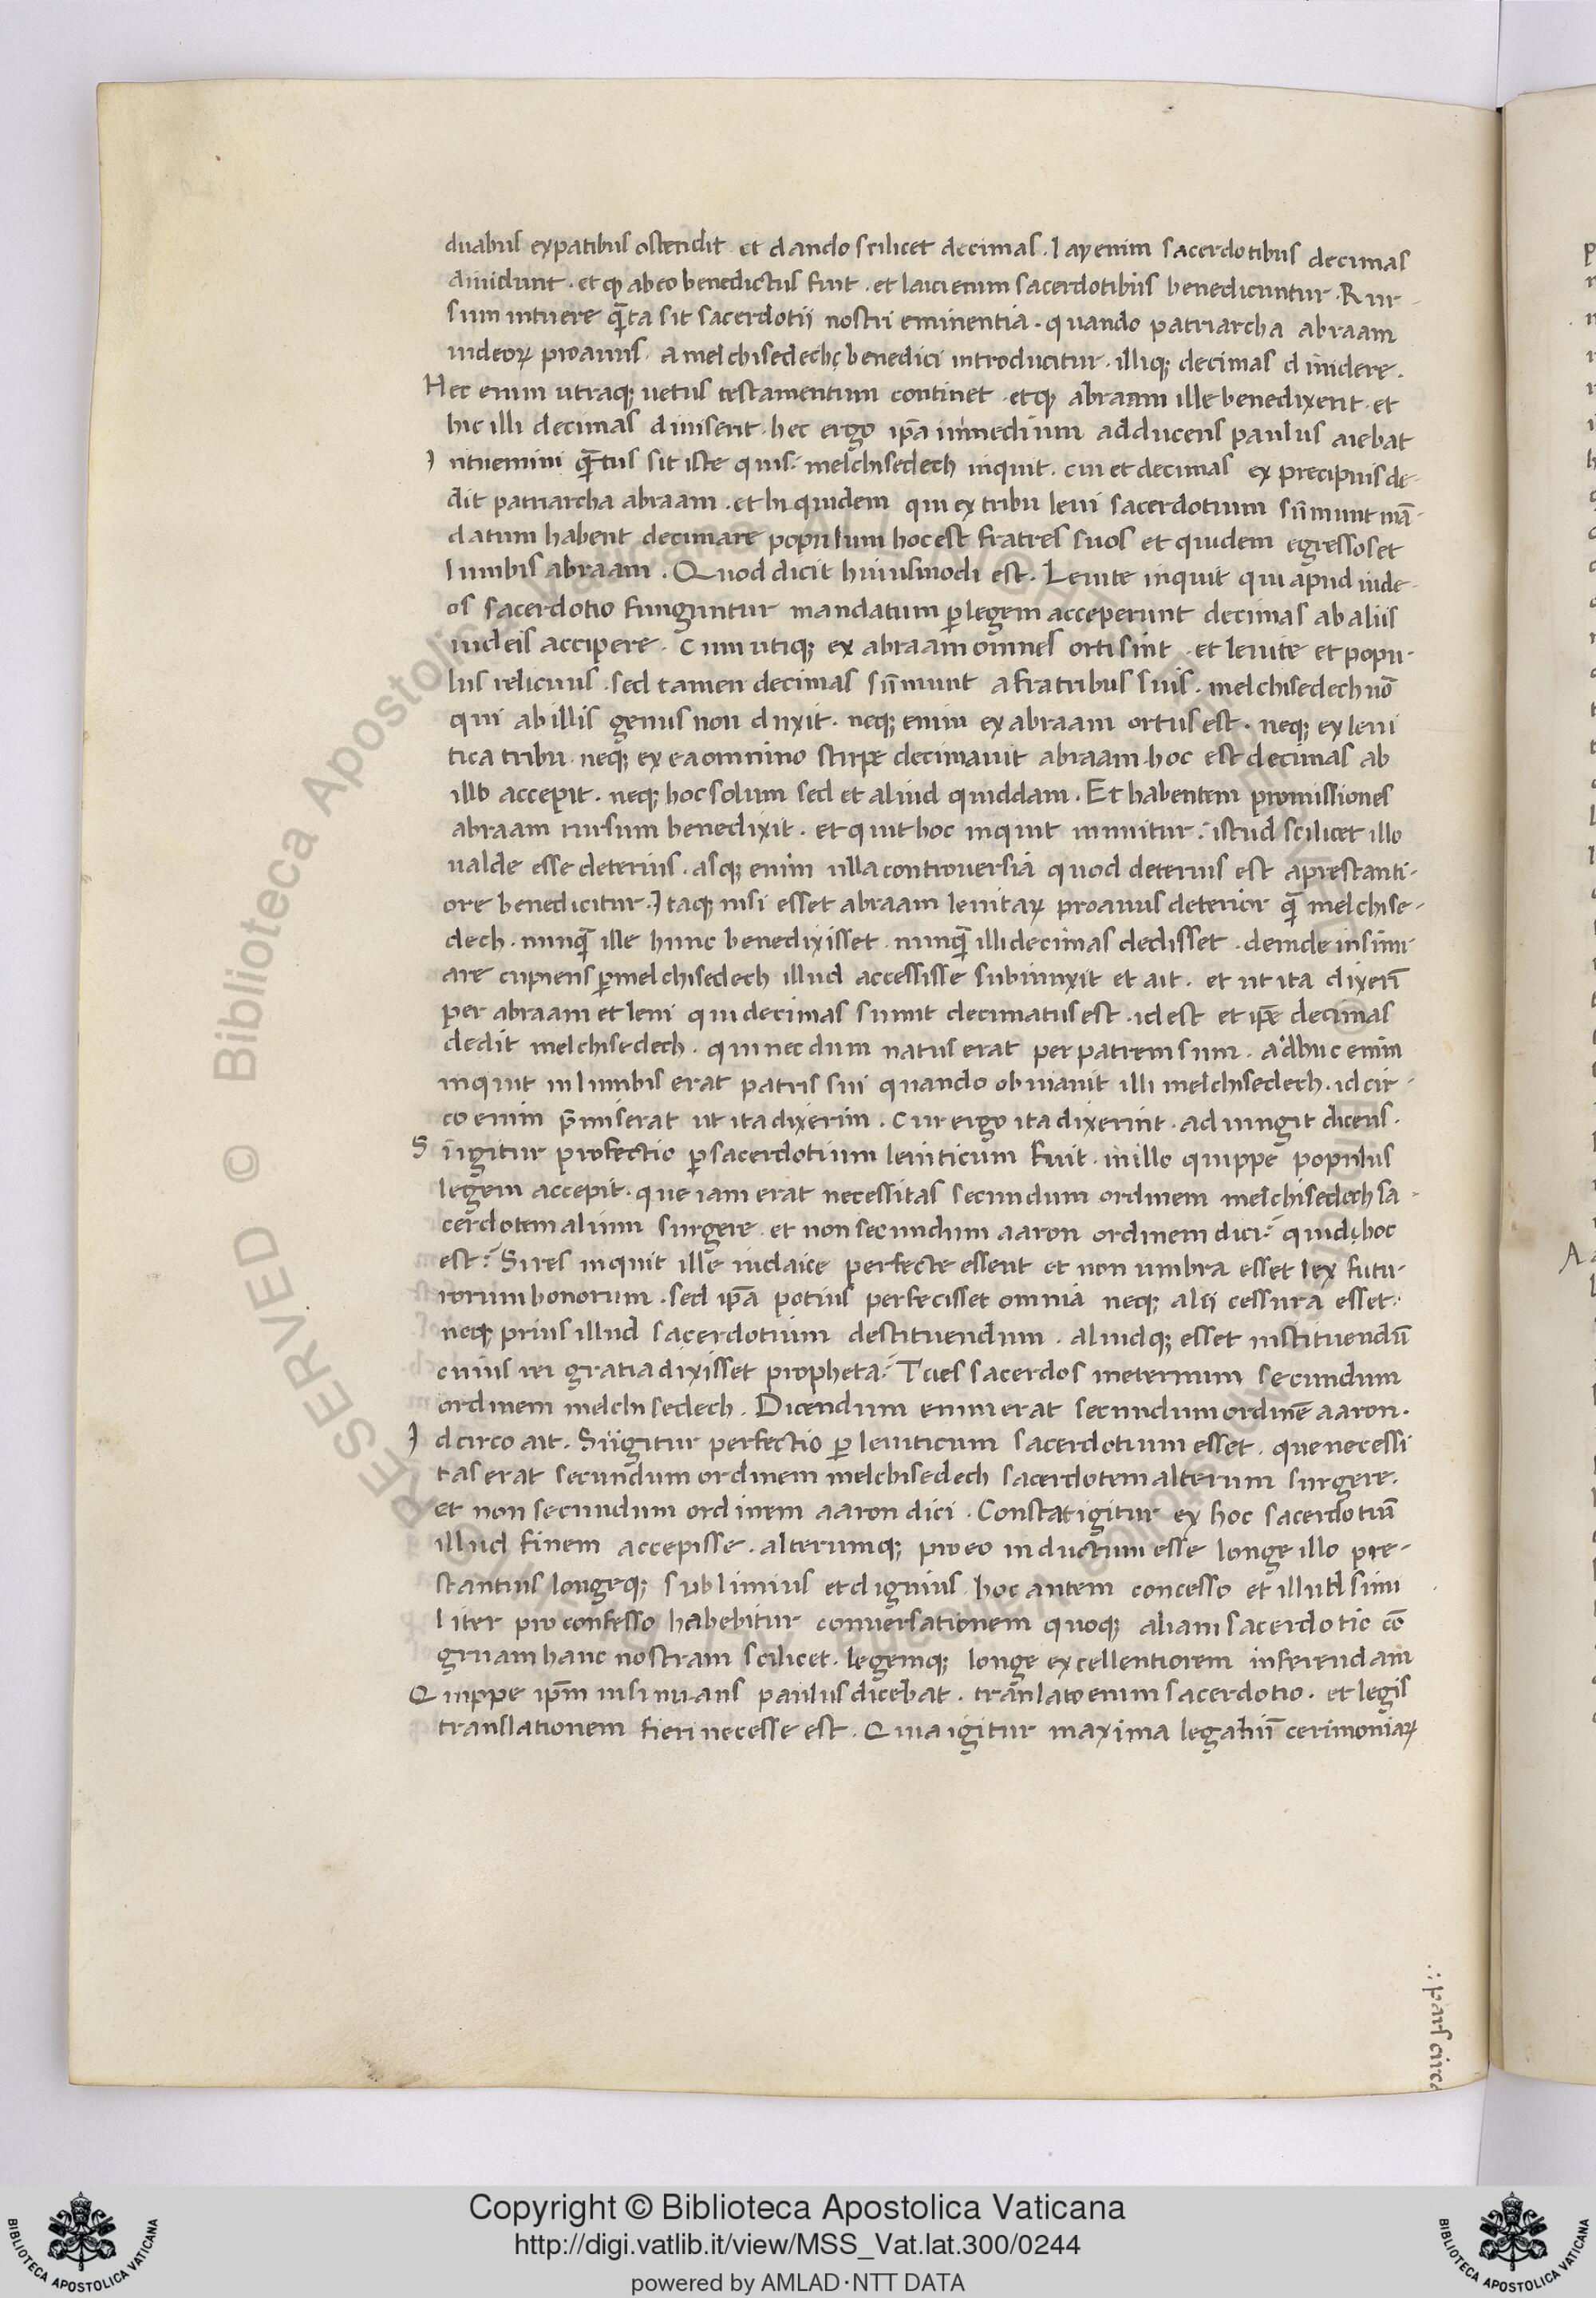 duabus ex patibus ostendit et dando scilicet decimas . layenim sacerdotibus decimas
diuidunt . et qͥ ab eo benedictus fuit . et laici enim sacerdotibus benedicuntur . Rur-
sum intuere qͣ̃ta sit sacerdotii nostri eminentia . quando patriarcha abraam
iudeoꝝ proauus . a melchisedech benedici introducitur . illiqꝫ decimas diuidere .
Hec enim utraqꝫ uetus testamentum continet . et qͥ abraam ille benedixerit . et
hic illi decimas diuiserit . hec ergo ip̄a in medium adducens paulus aiebat
Intuemini qͣ̃tus sit iste quis . melchisedech inquit . cui et decimas ex precipuis de-
dit patriarcha abraam . et hi quidem qui ex tribu leui sacerdotium sūmunt mā-
datum habent decimare populum hoc est fratres suos et quidem egressos et
lumbis abraam . Quod dicit huiusmodi est . Leuite inquit qui apud iude-
os sacerdotio funguntur mandatum ꝑ legem acceperunt decimas ab aliis
iudeis accipere . Cum utiqꝫ ex abraam omnes orti sint . et leuite et popu-
lus relicuus . sed tamen decimas sūmunt a fratribus suis . melchisedech uō
qui ab illis genus non duxit . neqꝫ enim ex abraam ortus est . neqꝫ ex leui
tica tribu . neqꝫ ex ea omnino stirpe decimauit abraam . hoc est decimas ab
illo accepit . neqꝫ hoc solum sed et aliud quiddam . Et habentem promissiones
abraam rursum benedixit . et quit hoc inquit inuitur : istud scilicet illo
ualde esse deterius . asqꝫ enim ulla controuersia quod deterius est a prestanti-
ore benedicitur . Itaqꝫ nisi esset abraam leuitaꝝ proauus deterior qͣ̃ melchise-
dech . nunqͣ̃ ille hunc benedixisset . nunqͣ̃ illi decimas dedisset . deinde insinu
are cupiens ꝑ melchisedech illud accessisse subiunxit et ait . et ut ita dixerī
per abraam et leui qui decimas sumit decimatus est . id est et ip̄e decimas
dedit melchisedech . qui nec dum natus erat per patrem sum . adhuc enim
inquit in lumbis erat patris sui quando obuiauit illi melchisedech . id cir-
co enim p̄miserat ut ita dixerim . Cur ergo ita dixerint . ad iungit dicens .
Si igitur profectio ꝑ sacerdotium leuiticum fuit . in illo quippe populus
legem accepit . que iam erat necessitas secundum ordinem melchisedech sa-
cerdotem alium surgere . et non secundum aaron ordinem dici : quid hoc
est : Si res inquit ille iudaice perfecte essent et non umbra esset lex futu-
rorum bonorum . sed ip̄a potius perfecisset omnia neqꝫ alii cessura esset .
neqꝫ prius illud sacerdotium destituendum . aliudqꝫ esset instituendū
cuius rei gratia dixisset propheta : Tu es sacerdos in eternum secundum
ordinem melchisedech . Dicendum enim erat secundum ordinē aaron .
Idcirco ait . Si igitur perfectio ꝑ leuiticum sacerdotium esset . que necessi
tas erat secundum ordinem melchisedech sacerdotem alterum surgere .
et non secundum ordinem aaron dici . Constat igitur ex hoc sacerdotiū
illud finem accepisse . alterumqꝫ pro eo inductum esse longe illo pre-
stantius longeqꝫ sublimius et dignius . hoc autem concesso et illud simi
liter pro confesso habebitur conuersationem quoqꝫ aliam sacerdotio cō
gruam hanc nostram scilicet . legemqꝫ longe excellentiorem inferendam
Quippe ip̄m insinuans paulus dicebat . translato enim sacerdotio . et legis
translationem fieri necesse est . Quia igitur maxima legaliū cerimoniaꝝ
.: pars circa
Copyright © Biblioteca Apostolica Vaticana
http://digi.vatlib.it/view/MSS_Vat.lat.300/0244
powered by AMLAD·NTT DATA
BIBLIOTECA APOSTOLICA VATICANA
BIBLIOTECA APOSTOLICA VATICANA